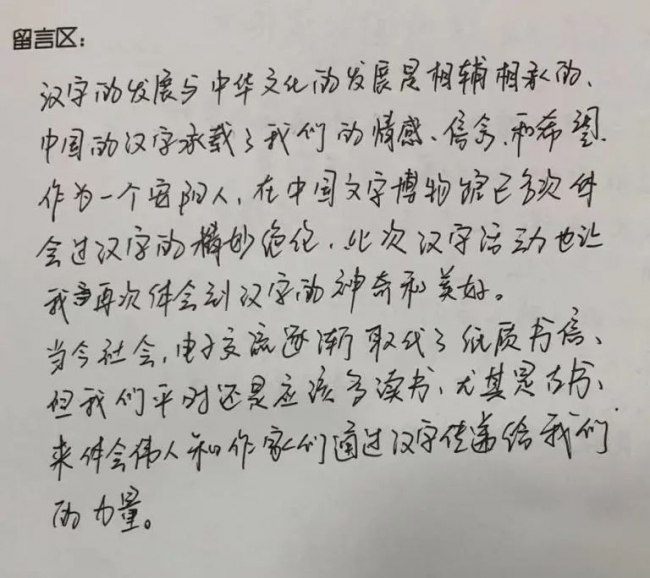 留言区：
汉字的发展与中华文化的发展是相辅相承的、
中国的汉字承载了我们的情感、信念、和希望.
作为一个安阳人，在中国文字博物馆已多次体
会过汉字的精妙绝伦，此次汉字活动也让
我再次体会到汉字的神奇和美好。
当今社会，电子交流逐渐取代了纸质书信、
但我们平时还是应该多读书、尤其是古书、
来体会伟人和作家们通过汉字传递给我们
的力量。